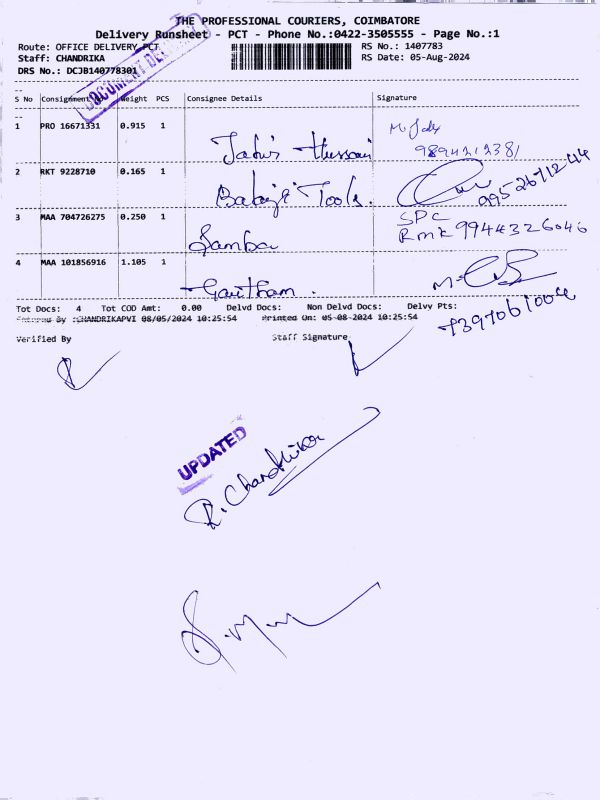 THE PROFESSIONAL COURIERS, COIMBATORE
Delivery Runsheet - PCT - Phone No.:0422-3505555 - Page No.:1
Route: OFFICE DELIVERY PCT RS No.: 1407783
Staff: CHANDRIKA RS Date: 05-Aug-2024
DRS No.: DCJB140778301
DOCUMENT
S No Consignment Weight PCS Consignee Details Signature
1 PRO 16671331 0.915 1 Hussain
9894212381
2 RKT 9228710 0.165 1 Balaji Tools. 9952671244
3 MAA 704726275 0.250 1 Samba SPC
Rmk 9944326046
4 MAA 101856916 1.105 1 Gautham.
Tot Docs: 4 Tot COD Amt: 0.00 Delvd Docs: Non Delvd Docs: Delvy Pts:
7397061004
Entered By :CHANDRIKAPVI 08/05/2024 10:25:54 Printed On: 05-08-2024 10:25:54
Verified By Staff Signature
UPDATED
R. Chandrika